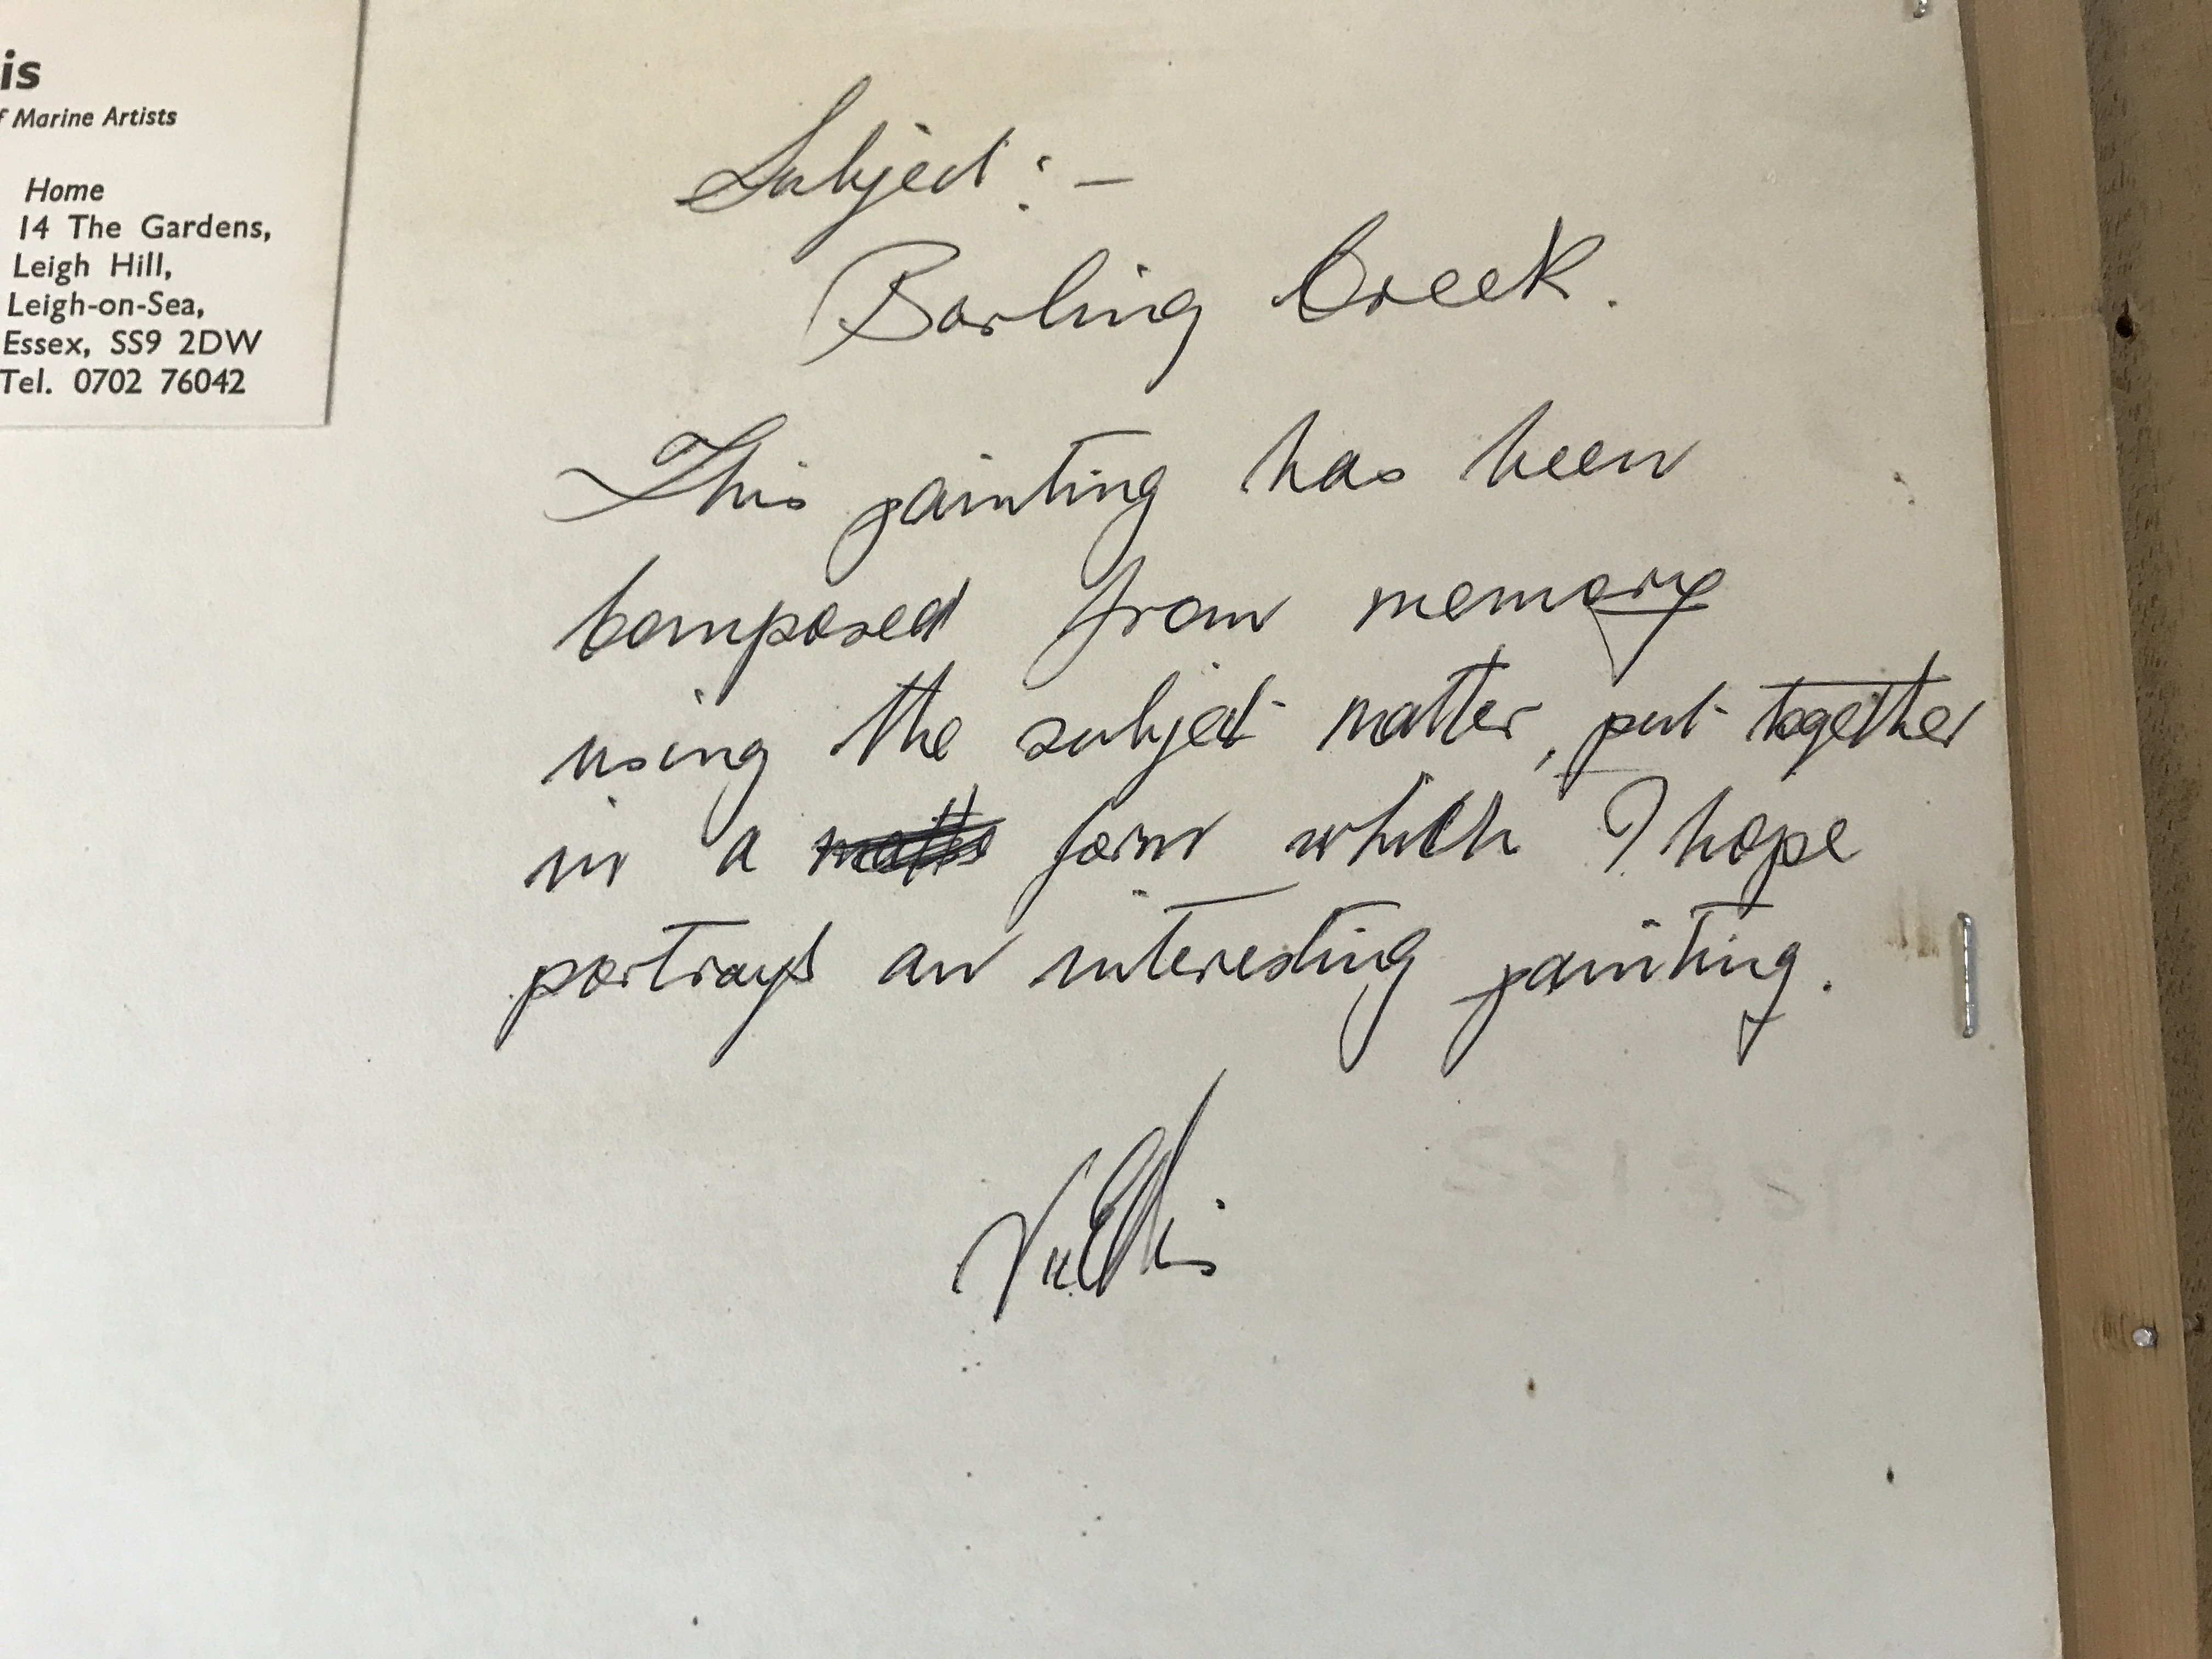 is
f Marine Artists
Home
14 The Gardens,
Leigh Hill,
Leigh-on-Sea,
Essex, SS9 2DW
Tel. 0702 76042
Subject :-
Barling Creek.
This painting has been
Composed from memory
using the subject matter, put together
in a form which I hope
portrays an interesting painting.
Vic Ellis